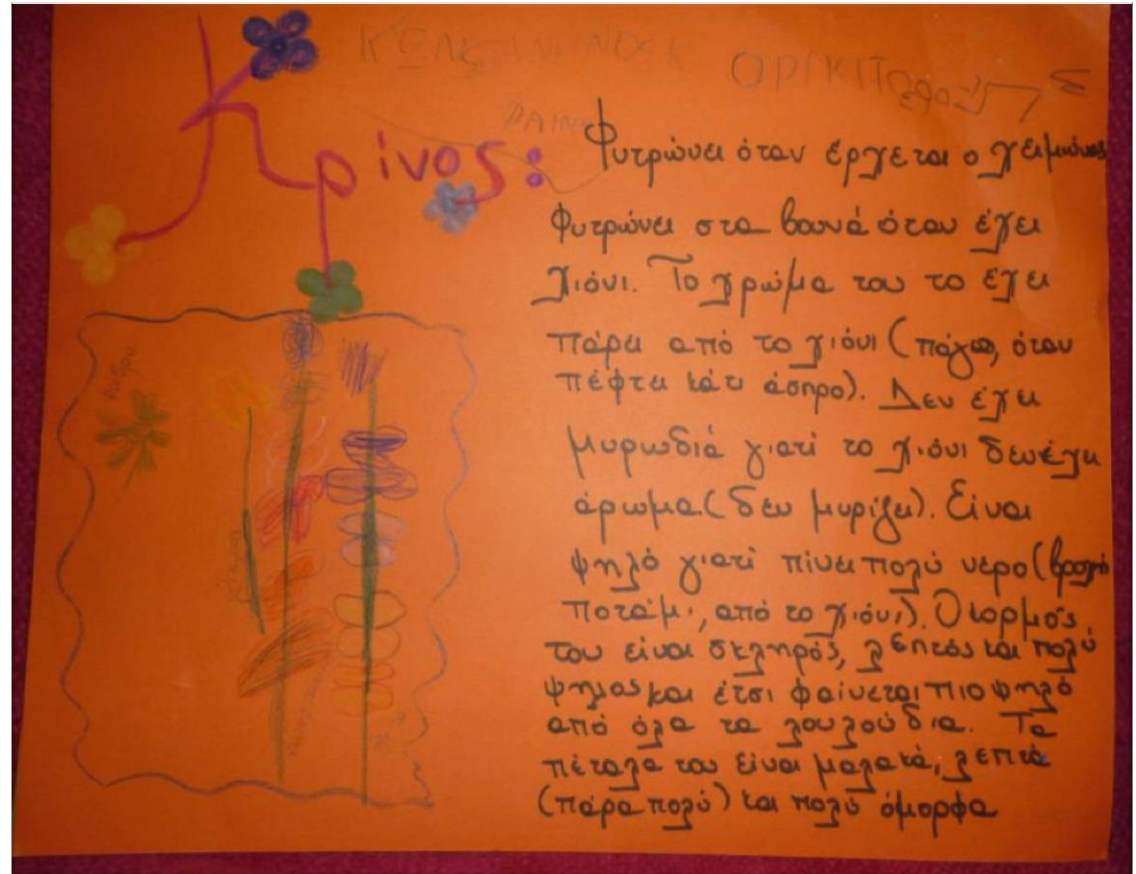 Κρίνος:
Φυτρώνει όταν έρχεται ο χειμώνας
Φυτρώνει στα βουνά όταν έχει
χιόνι. Το χρώμα του το έχει
πάρει από το χιόνι (πάγω, όταν
πέφτει κάτι άσπρο). Δεν έχει
μυρωδιά γιατί το χιόνι δεν έχει
άρωμα (δεν μυρίζει). Είναι
ψηλό γιατί πίνει πολύ νερό (βροχή
ποτάμι, από το χιόνι). Ο κορμός
του είναι σκληρός, λεπτός και πολύ
ψηλός και έτσι φαίνεται πιο ψηλό
από όλα τα λουλούδια. Τα
πέταλα του είναι μαλακά, λεπτά
(πάρα πολύ) και πολύ όμορφα